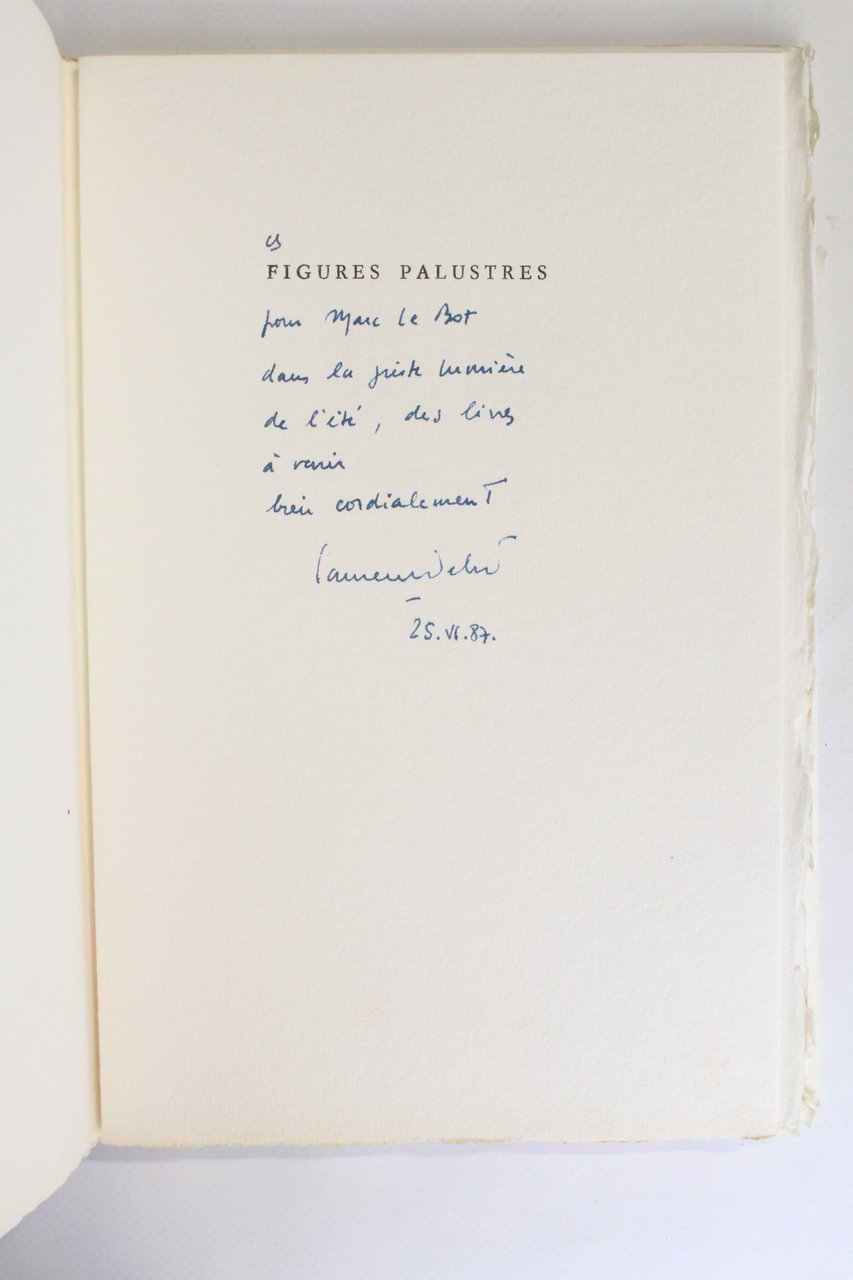 ces
FIGURES PALUSTRES
pour Marc Le Bot
dans la juste lumière
de l'été, des livres
à venir
bien cordialement
Laurent Debut
25.VI.87.